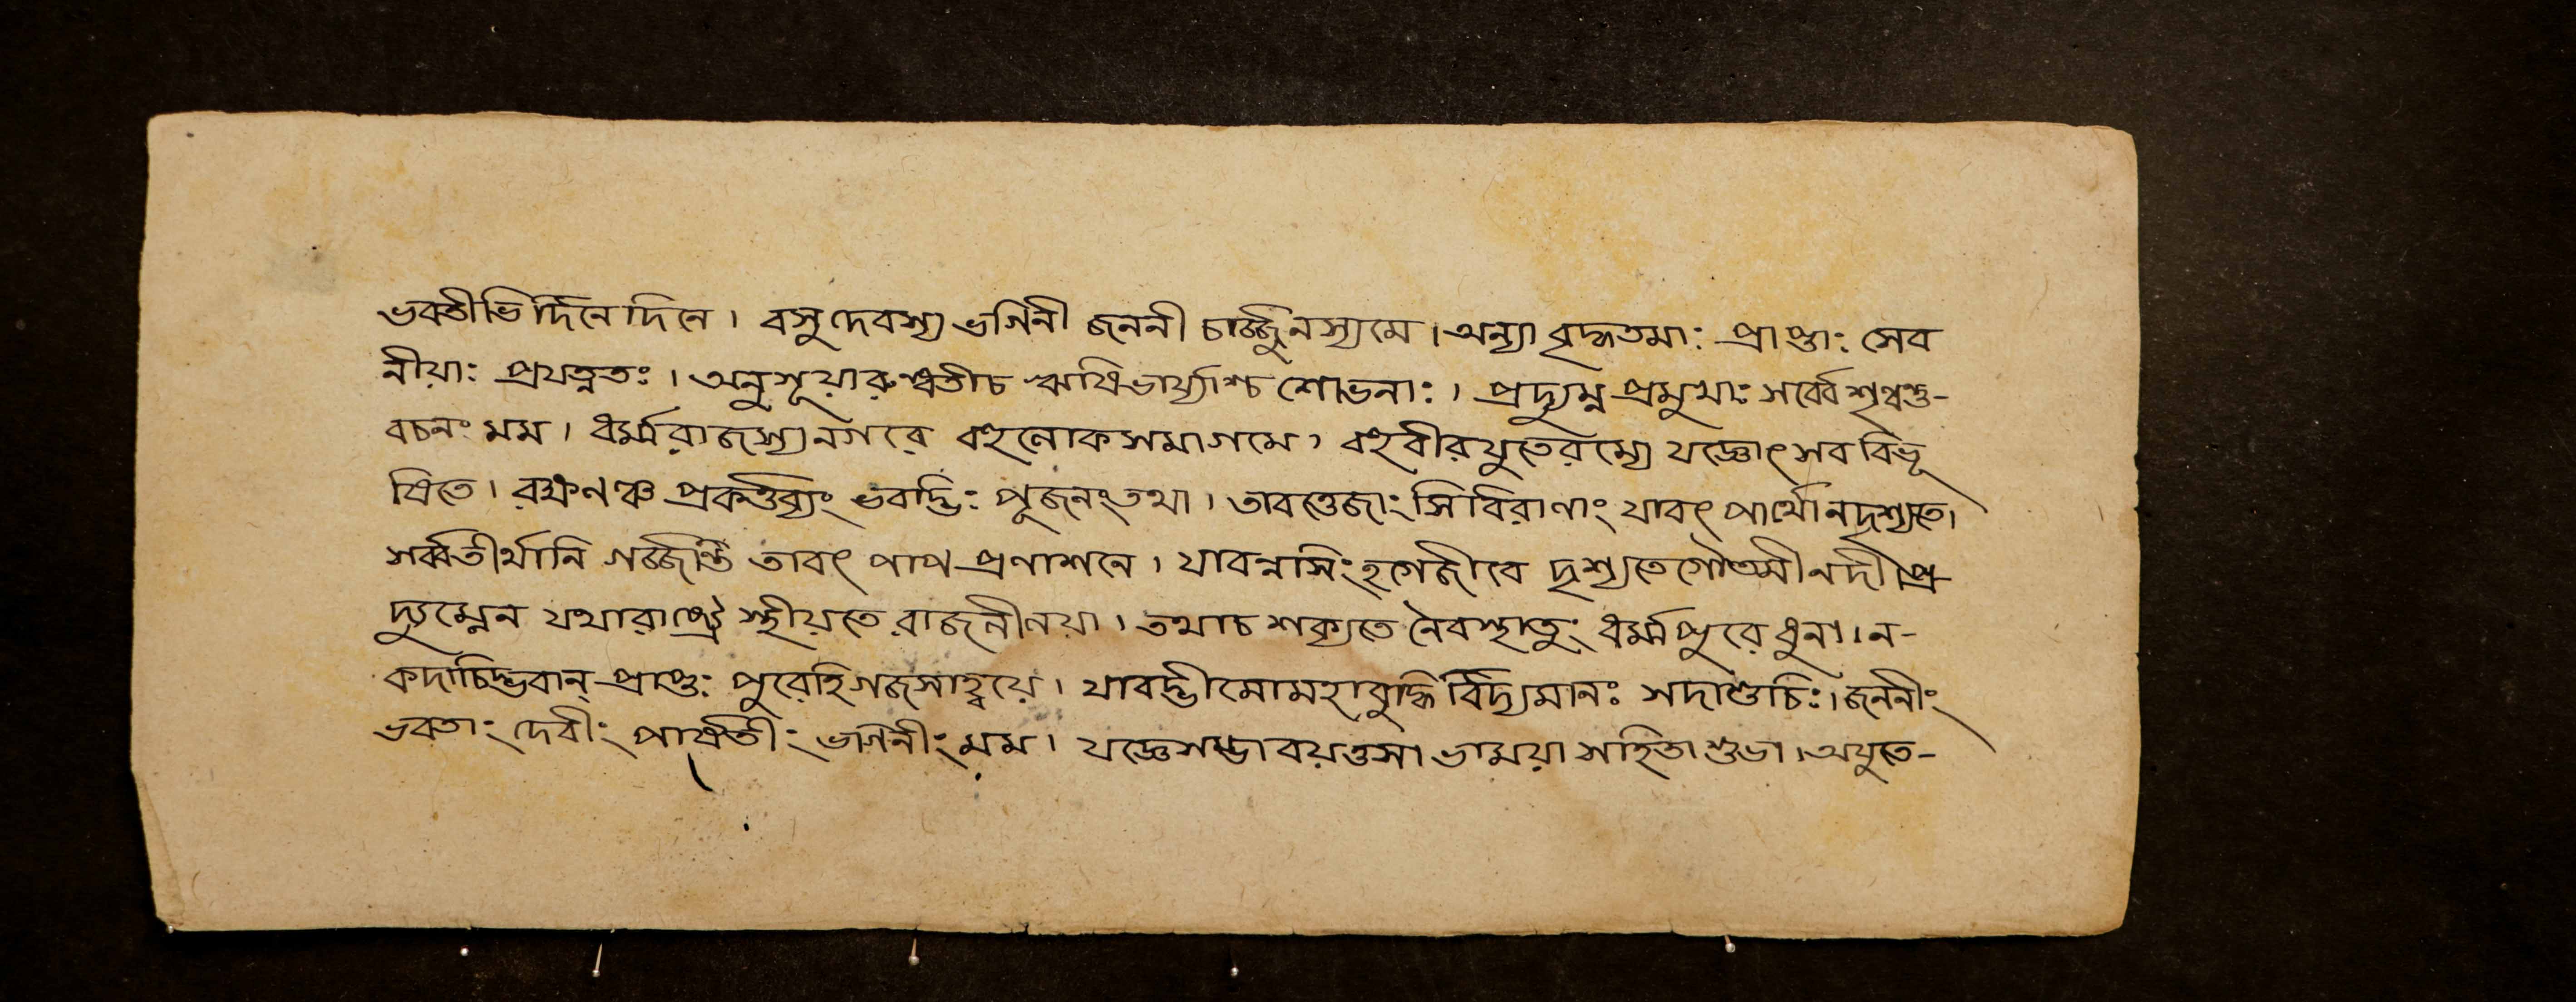 ভবতীভির্দিনেদিনে। বসুদেবশ্য ভগিনী জননী চার্জ্জুনস্যমে। অন্যা বৃদ্ধতমাঃ প্রাপ্তাঃ সেব
নীয়াঃ প্রযত্নতঃ। অনুশূয়ারুন্ধতীচ ঋষিভার্য্যাশ্চ শোভনাঃ। প্রদ্যুম্ন প্রমুখাঃ সর্ব্বে শৃণ্বন্তু-
বচনং মম। ধর্ম্মরাজস্য নগরে বহুলোকসমাগমে। বহুবীরযুতেরম্যে যজ্ঞোৎসব বিভূ
ষিতে। রক্ষণঞ্চ প্রকর্ত্তব্যং ভবদ্ভিঃ পূজনং তথা। তাবত্তেজাংসি বিরাণাং যাবৎ পার্থো ন দৃশ্যতে।
সর্ব্বতীর্থানি গর্জ্জন্তি তাবৎ পাপ প্রণাশনে। যাবন্নসিংহগেজীবে দৃশ্যতে গৌতমী নদী প্র-
দ্যুম্নেন যথারাষ্ট্রে স্থীয়তে রাজলীলয়া। তথাচ শক্যতে নৈবস্থাতুং ধর্ম্মপুরেধুনা। ন-
কদাচিদ্ভবান্ প্রাপ্তঃ পুরেহি গজসাহ্বয়ে। যাবদ্ভীমোমহাবুদ্ধির্বিদ্যমানঃ সদাশুচিঃ। জননীং
ভবতাং দেবীং পার্ষতীং ভগিনীং মম। যজ্ঞে সম্ভাবয়ত্তসা ভাময়া সহিতা শুভা। অযুতে-